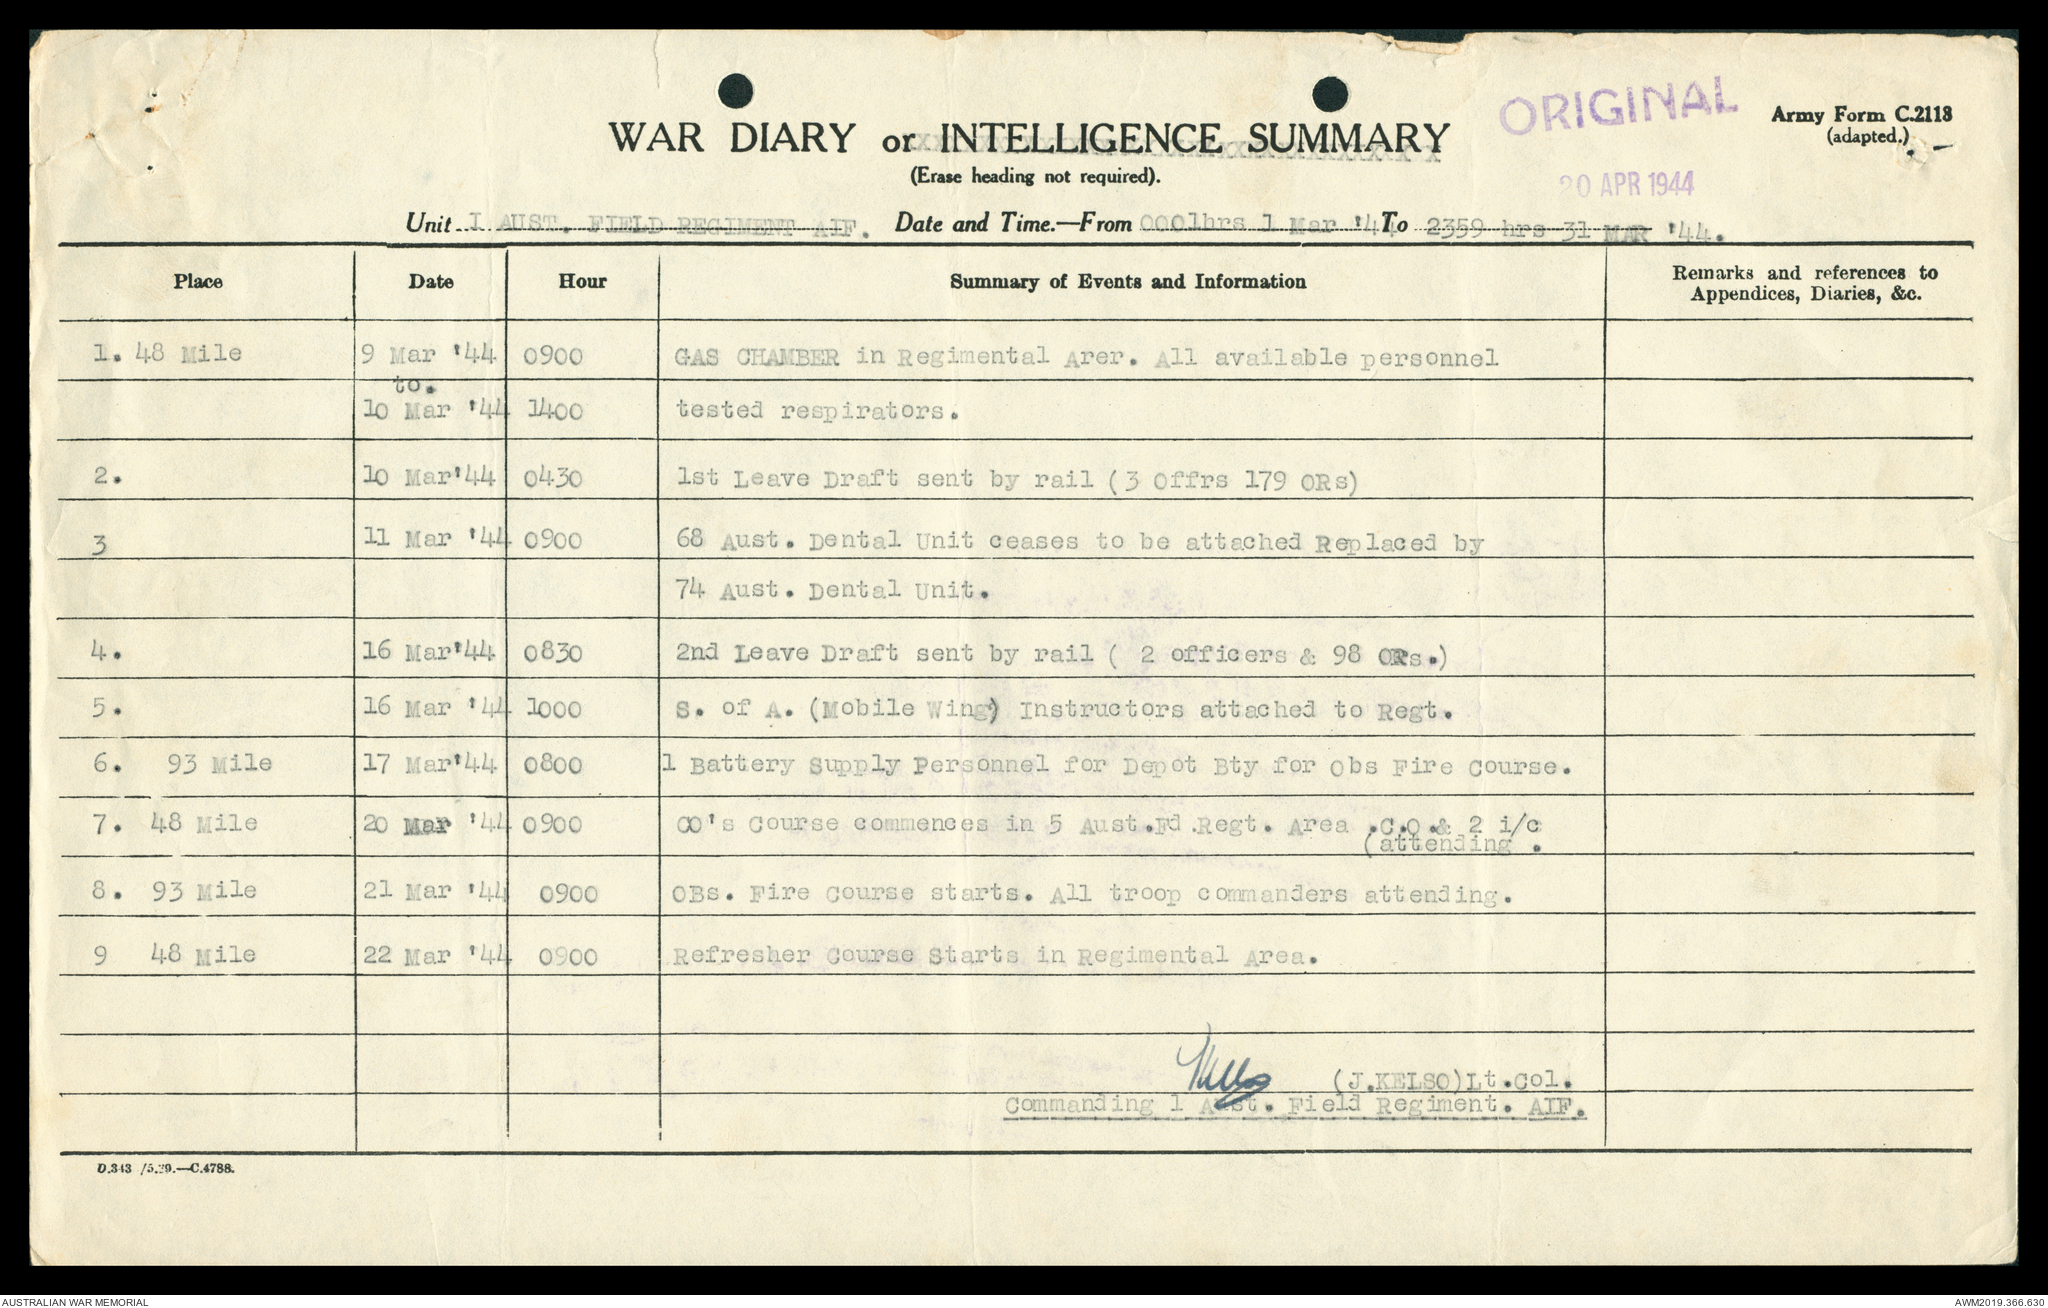 ORIGINAL
Army Form C.2118
(adapted.)
WAR DIARY or INTELLIGENCE SUMMARY
(Erase heading not required).
20 APR 1944
Unit I AUST. FIELD REGIMENT AIF. Date and Time.—From 0001hrs 1 Mar '44 To 2359 hrs 31 MAR '44.
Place Date Hour Summary of Events and Information Remarks and references to
Appendices, Diaries, &c.
1. 48 Mile 9 Mar '44 0900 GAS CHAMBER in Regimental Arer. All available personnel
to.
10 Mar '44 1400 tested respirators.
2. 10 Mar'44 0430 1st Leave Draft sent by rail (3 Offrs 179 ORs)
3 11 Mar '44 0900 68 Aust. Dental Unit ceases to be attached Replaced by
74 Aust. Dental Unit.
4. 16 Mar'44 0830 2nd Leave Draft sent by rail ( 2 officers & 98 ORs.)
5. 16 Mar '44 1000 S. of A. (Mobile Wing) Instructors attached to Regt.
6. 93 Mile 17 Mar'44 0800 1 Battery Supply Personnel for Depot Bty for Obs Fire Course.
7. 48 Mile 20 Mar '44 0900 CO's Course commences in 5 Aust.Fd.Regt. Area .C.O.& 2 i/c
(attending .
8. 93 Mile 21 Mar '44 0900 OBs. Fire Course starts. All troop commanders attending.
9 48 Mile 22 Mar '44 0900 Refresher Course Starts in Regimental Area.
(J.KELSO)Lt.Col.
Commanding 1 Aust. Field Regiment. AIF.
D.343 /5.39.—C.4788.
AUSTRALIAN WAR MEMORIAL
AWM2019.366.630